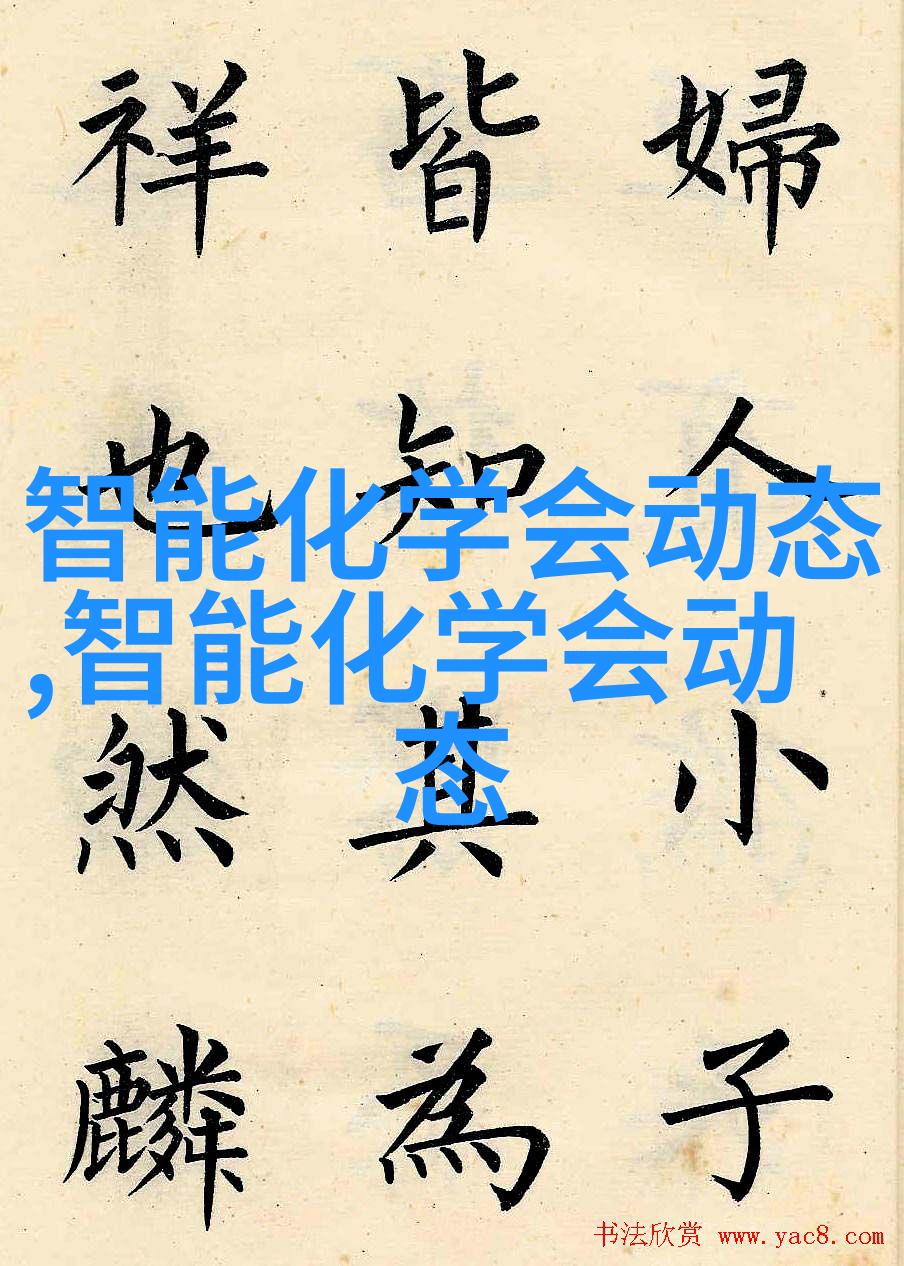 婦人小子
皆知其為
祥也然麟
智能化学会动态
,智能化学会动
态
书法欣赏 www.yac8.com